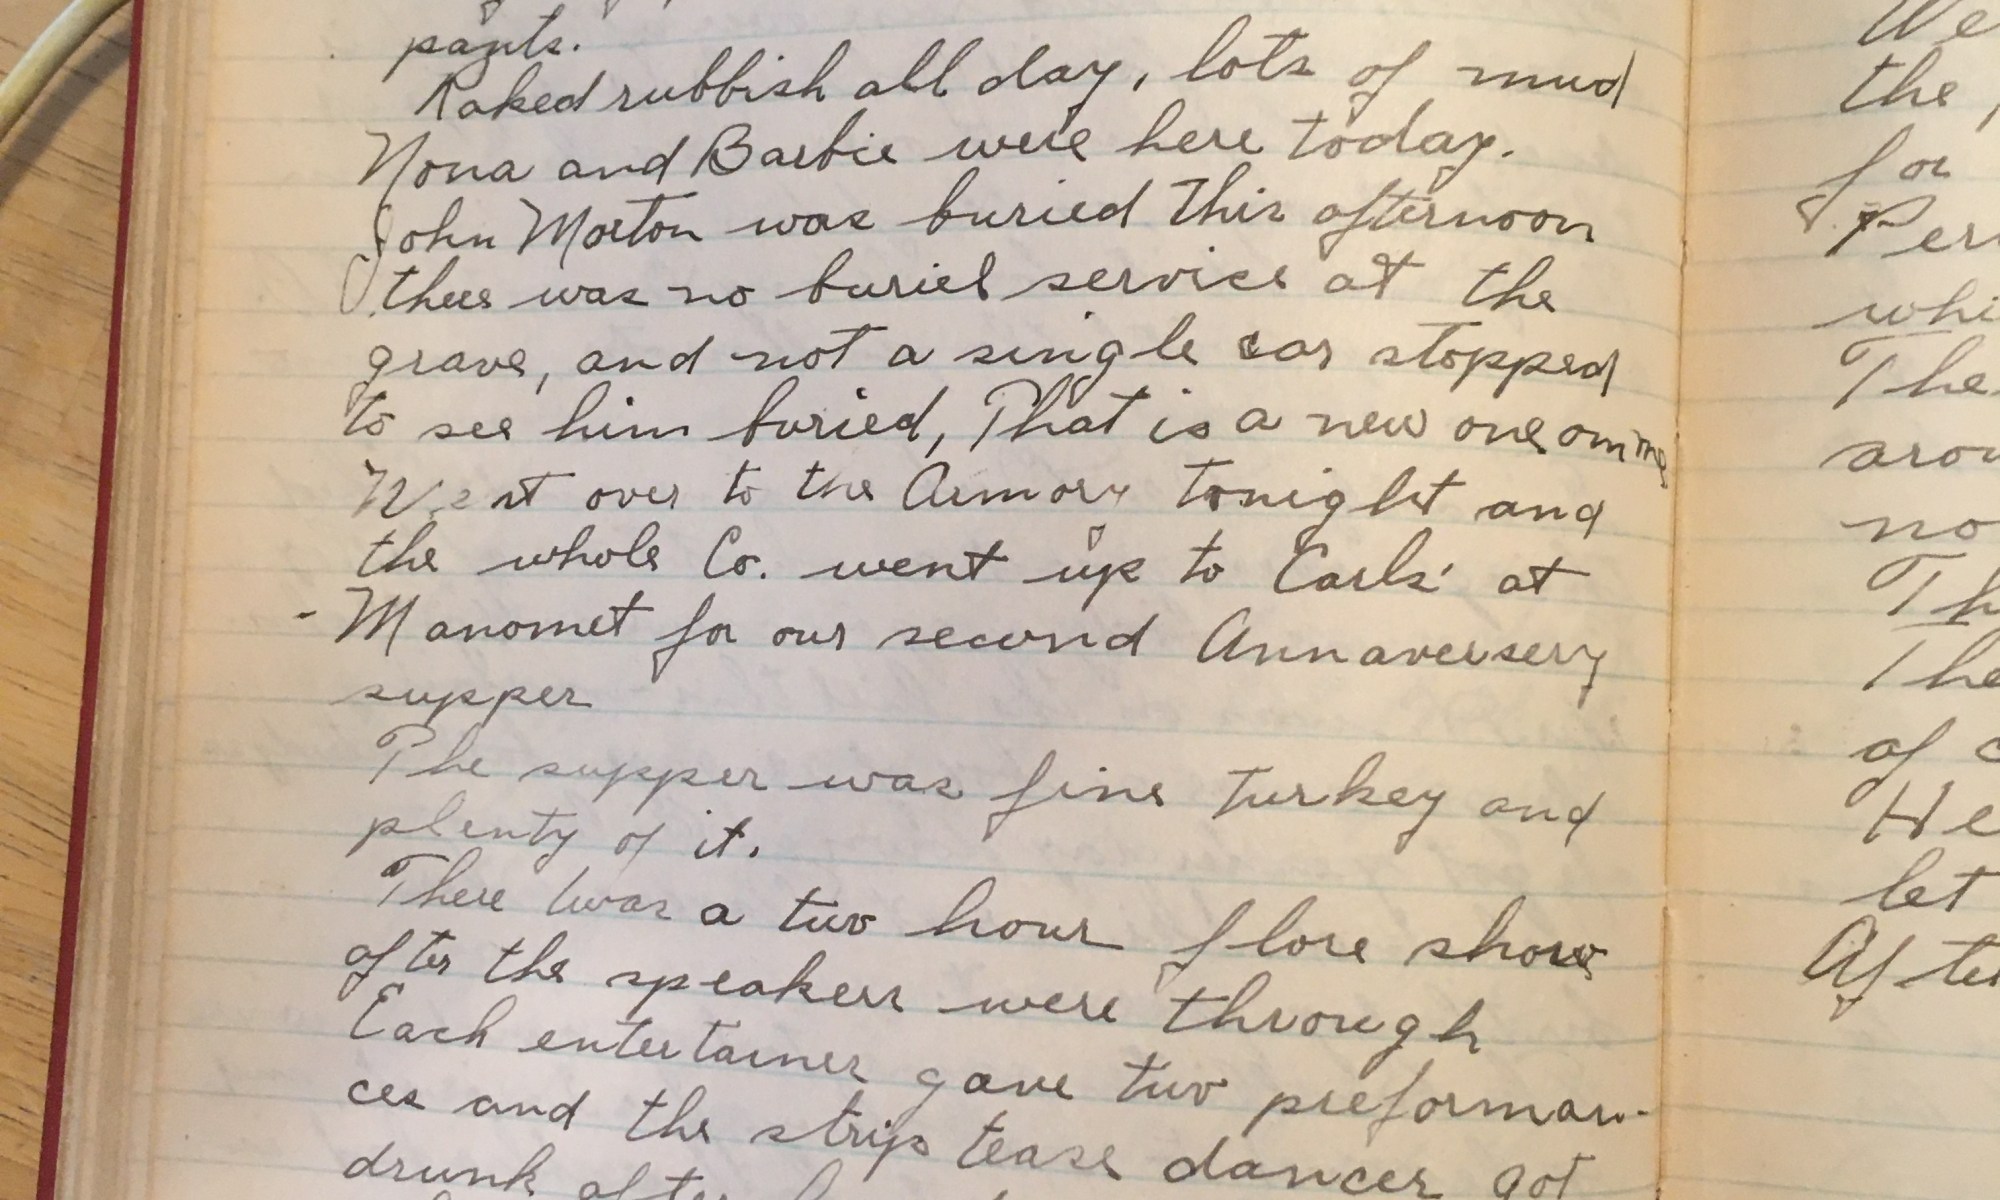 pants.
Raked rubbish all day, lots of mud
Nona and Barbie were here today.
John Morton was buried this afternoon
there was no buriel service at the
grave, and not a single car stopped
to see him buried, That is a new one on me
Went over to the Armory tonight and
the whole Co. went up to Carls' at
- Manomet for our second Annaversery
supper
The supper was fine turkey and
plenty of it.
There was a two hour flore show
after the speakers were through
Each entertainer gave two preforman-
ces and the strip tease dancer got
drunk after
We
the
for
Per
whi
The
arou
no
Th
The
of c
He
let
Afte